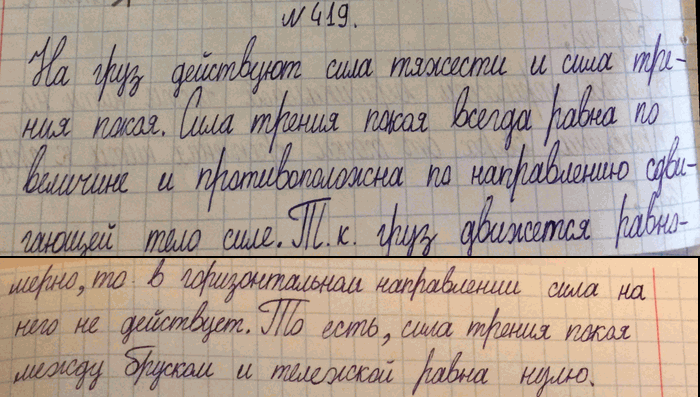 № 419.
На груз действуют сила тяжести и сила тре-
ния покоя. Сила трения покоя всегда равна по
величине и противоположна по направлению сдви-
гающей тело силе. Т.к. груз движется равно-
мерно, то в горизонтальном направлении сила на
него не действует. То есть, сила трения покоя
между бруском и тележкой равна нулю.